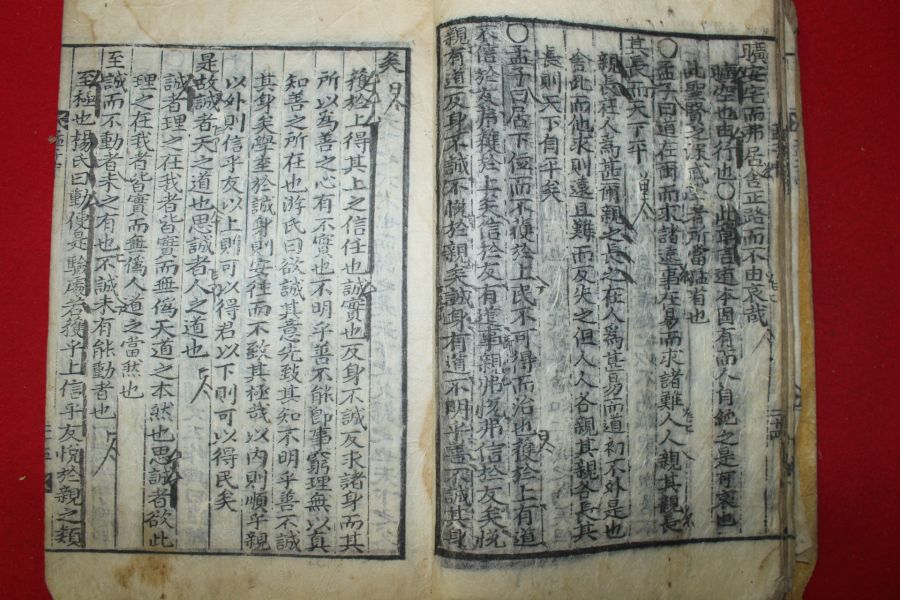 曠安宅而弗居舍正路而不由哀哉
曠空也由行也○此章言道本固有而人自絶之是可哀也
此聖賢之深戒學者所當猛省也
○孟子曰道在爾而求諸遠事在易而求諸難人人親其親長
其長而天下平
親長在人爲甚爾親之長之在人爲甚易而道初不外是也
舍此而他求則遠且難而反失之但人人各親其親各長其
長則天下自平矣
○孟子曰居下位而不獲於上民不可得而治也獲於上有道
不信於友弗獲於上矣信於友有道事親弗悅弗信於友矣悅
親有道反身不誠不悅於親矣誠身有道不明乎善不誠其身
矣
獲於上得其上之信任也誠實也反身不誠反求諸身而其
所以為善之心有不實也不明乎善不能即事窮理無以真
知善之所在也游氏曰欲誠其意先致其知不明乎善不誠
其身矣學至於誠身則安往而不致其極哉以内則順乎親
以外則信乎友以上則可以得君以下則可以得民矣
是故誠者天之道也思誠者人之道也
誠者理之在我者皆實而無僞天道之本然也思誠者欲此
理之在我者皆實而無僞人道之當然也
至誠而不動者未之有也不誠未有能動者也
至極也楊氏曰動便是驗處若獲乎上信乎友悅於親之類